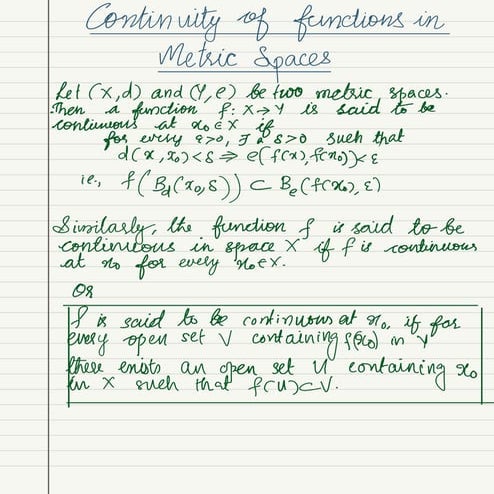 Continuity of functions in
Metric Spaces
Let (X,d) and (Y,e) be two metric spaces.
Then a function f: X→Y is said to be
continuous at x₀∈X if
for every ε>0, ∃ a δ>0 such that
d(x,x₀)<δ ⇒ e(f(x),f(x₀))<ε
i.e., f(B_d(x₀,δ)) ⊂ B_e(f(x₀),ε)
Similarly, the function f is said to be
continuous in space X if f is continuous
at x₀ for every x₀∈X.
OR
f is said to be continuous at x₀, if for
every open set V containing f(x₀) in Y
there exists an open set U containing x₀
in X such that f(U)⊂V.